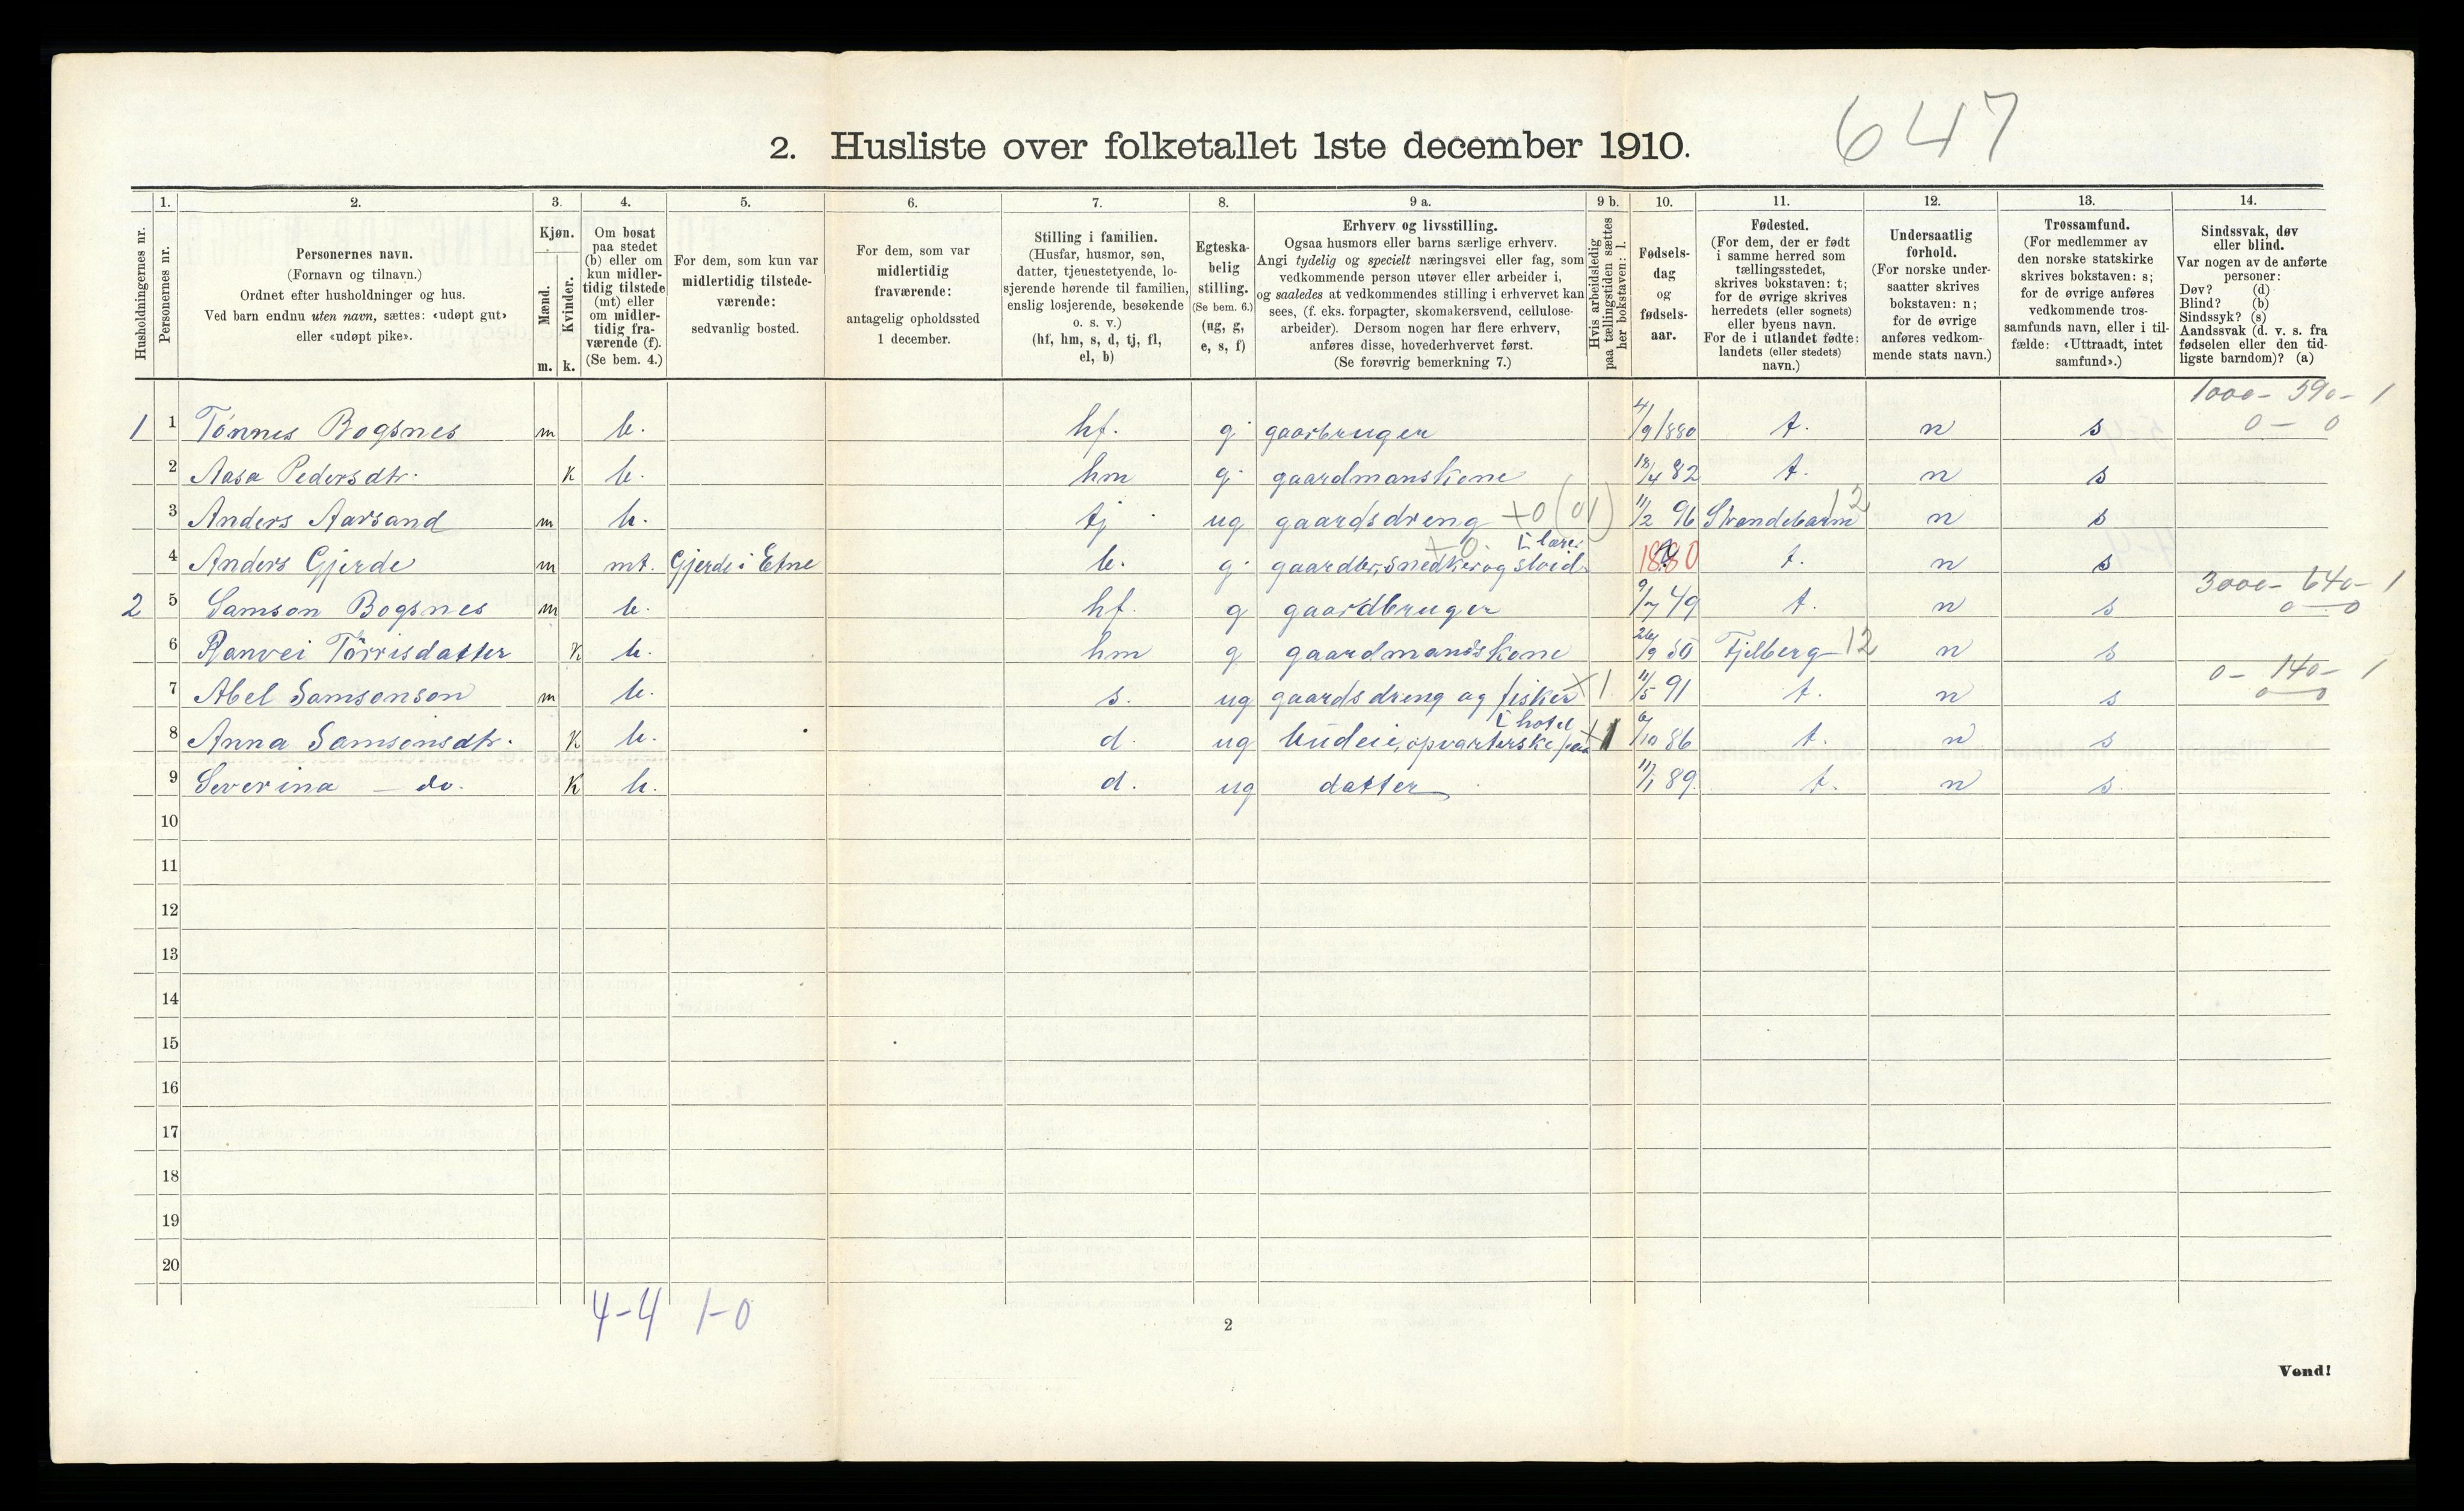 647
2. Husliste over folketallet 1ste december 1910.
Husholdningernes nr.
1.
Personernes nr.
2.
Personernes navn.
(Fornavn og tilnavn.)
Ordnet efter husholdninger og hus.
Ved barn endnu uten navn, sættes: «udøpt gut»
eller «udøpt pike».
3.
Kjøn.
Mænd.
Kvinder.
m. k.
4.
Om bosat
paa stedet
(b) eller om
kun midler-
tidig tilstede
(mt) eller
om midler-
tidig fra-
værende (f).
(Se bem. 4.)
5.
For dem, som kun var
midlertidig tilstede-
værende:
sedvanlig bosted.
6.
For dem, som var
midlertidig
fraværende:
antagelig opholdssted
1 december.
7.
Stilling i familien.
(Husfar, husmor, søn,
datter, tjenestetyende, lo-
sjerende hørende til familien,
enslig losjerende, besøkende
o. s. v.)
(hf, hm, s, d, tj, fl,
el, b)
8.
Egteska-
belig
stilling.
(Se bem. 6.)
(ug, g,
e, s, f)
9 a.
Erhverv og livsstilling.
Ogsaa husmors eller barns særlige erhverv.
Angi tydelig og specielt næringsvei eller fag, som
vedkommende person utøver eller arbeider i,
og saaledes at vedkommendes stilling i erhvervet kan
sees, (f. eks. forpagter, skomakersvend, cellulose-
arbeider). Dersom nogen har flere erhverv,
anføres disse, hovederhvervet først.
(Se forøvrig bemerkning 7.)
9 b.
Hvis arbeidsledig
paa tællingstiden sættes
her bokstaven: l.
10.
Fødsels-
dag
og
fødsels-
aar.
11.
Fødested.
(For dem, der er født
i samme herred som
tællingsstedet,
skrives bokstaven: t;
for de øvrige skrives
herredets (eller sognets)
eller byens navn.
For de i utlandet fødte:
landets (eller stedets)
navn.)
12.
Undersaatlig
forhold.
(For norske under-
saatter skrives
bokstaven: n;
for de øvrige
anføres vedkom-
mende stats navn.)
13.
Trossamfund.
(For medlemmer av
den norske statskirke
skrives bokstaven: s;
for de øvrige anføres
vedkommende tros-
samfunds navn, eller i til-
fælde: «Uttraadt, intet
samfund».)
14.
Sindssvak, døv
eller blind.
Var nogen av de anførte
personer:
Døv? (d)
Blind? (b)
Sindssyk? (s)
Aandssvak (d. v. s. fra
fødselen eller den tid-
ligste barndom)? (a)
1000 - 590 - 1
1 1 Tönnes Bogsnes m b. hf. g gaarbruger 4/9 1880 t. n s 0 - 0
2 Aasa Pedersdtr. k b. hm g gaardmanskone 18/4 82 t. n s
3 Anders Aarsand m b. tj ug gaardsdreng +0 (01) 11/2 96 Strandebarm 12 n s
4 Anders Gjerde m mt. Gjerde i Etne b. g gaardbr, snedker og sløid- lærer +0 1880 t. n s
3000 - 640 - 1
2 5 Samson Bogsnes m b. hf. g gaardbruger 9/7 49 t. n s 0 - 0
6 Ranvei Törrisdatter k b. hm g gaardmandskone 26/9 50 Fjelberg 12 n s
0 - 140 - 1
7 Abel Samsonson m b. s. ug gaardsdreng og fisker X1 11/5 91 t. n s 0 - 0
8 Anna Samsonsdtr. k b. d. ug budeie, opvarterske paa hotel +1 6/10 86 t. n s
9 Severina - do. k b. d. ug datter 11/1 89. t. n s
10
11
12
13
14
15
16
17
18
19
20
4-4 1-0
2
Vend!